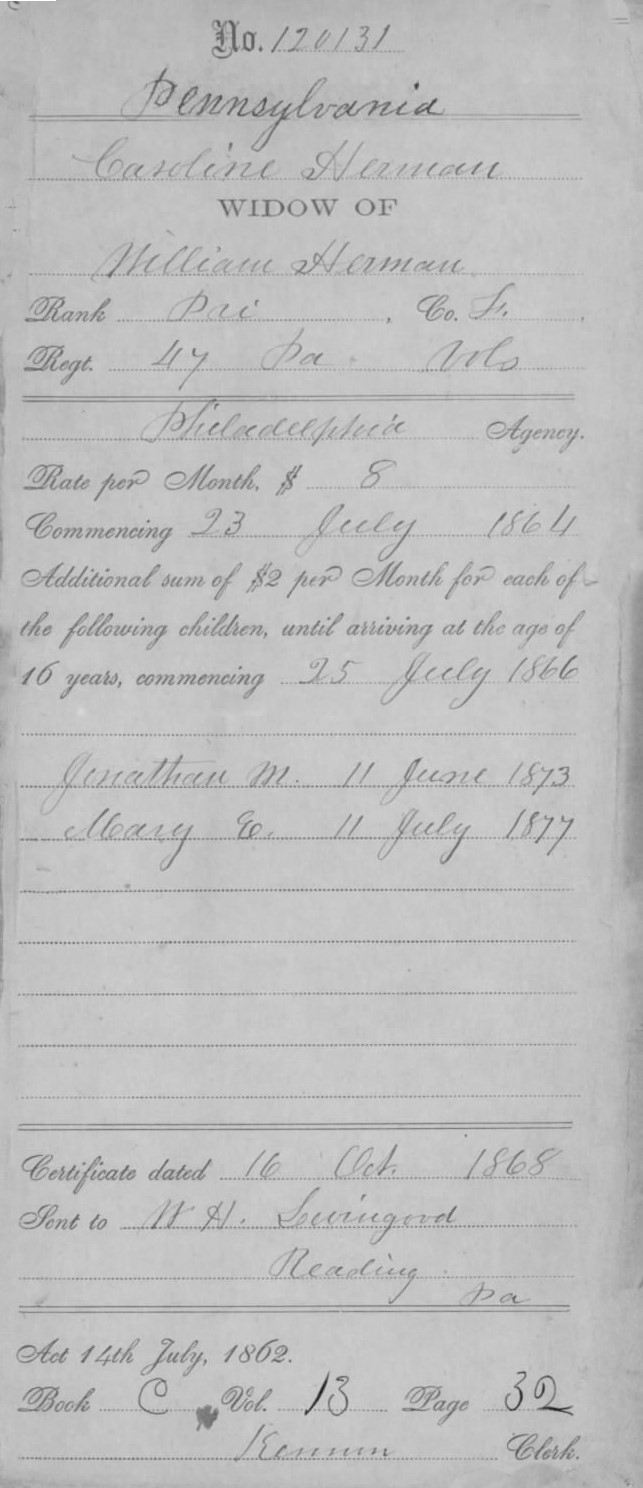 No. 120131
Pennsylvania
Caroline Herman
WIDOW OF
William Herman
Rank Pri , Co. F.
Regt. 47 Pa. Vols
Philadelphia Agency.
Rate per Month, $ 8
Commencing 23 July 1864
Additional sum of $2 per Month for each of
the following children, until arriving at the age of
16 years, commencing 25 July 1866
Jonathan M. 11 June 1873
Mary E. 11 July 1877
Certificate dated 16 Oct. 1868
Sent to W H. Livingood
Reading
Pa
Act 14th July, 1862.
Book C Vol. 13 Page 32
Clerk.